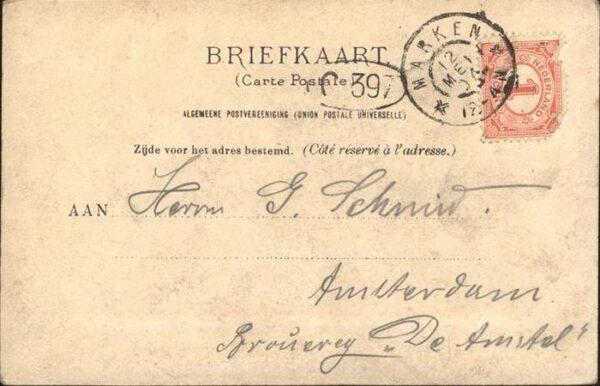 BRIEFKAART
(Carte Postale)
C 397
ALGEMEENE POSTVEREENIGING (UNION POSTALE UNIVERSELLE)
Zijde voor het adres bestemd. (Côté réservé à l'adresse.)
MARKEN
12 MEI
12-4N
NEDERLAND
1
AAN Herrn G. Schmid.
Amsterdam
Brouerey „De Amstel"